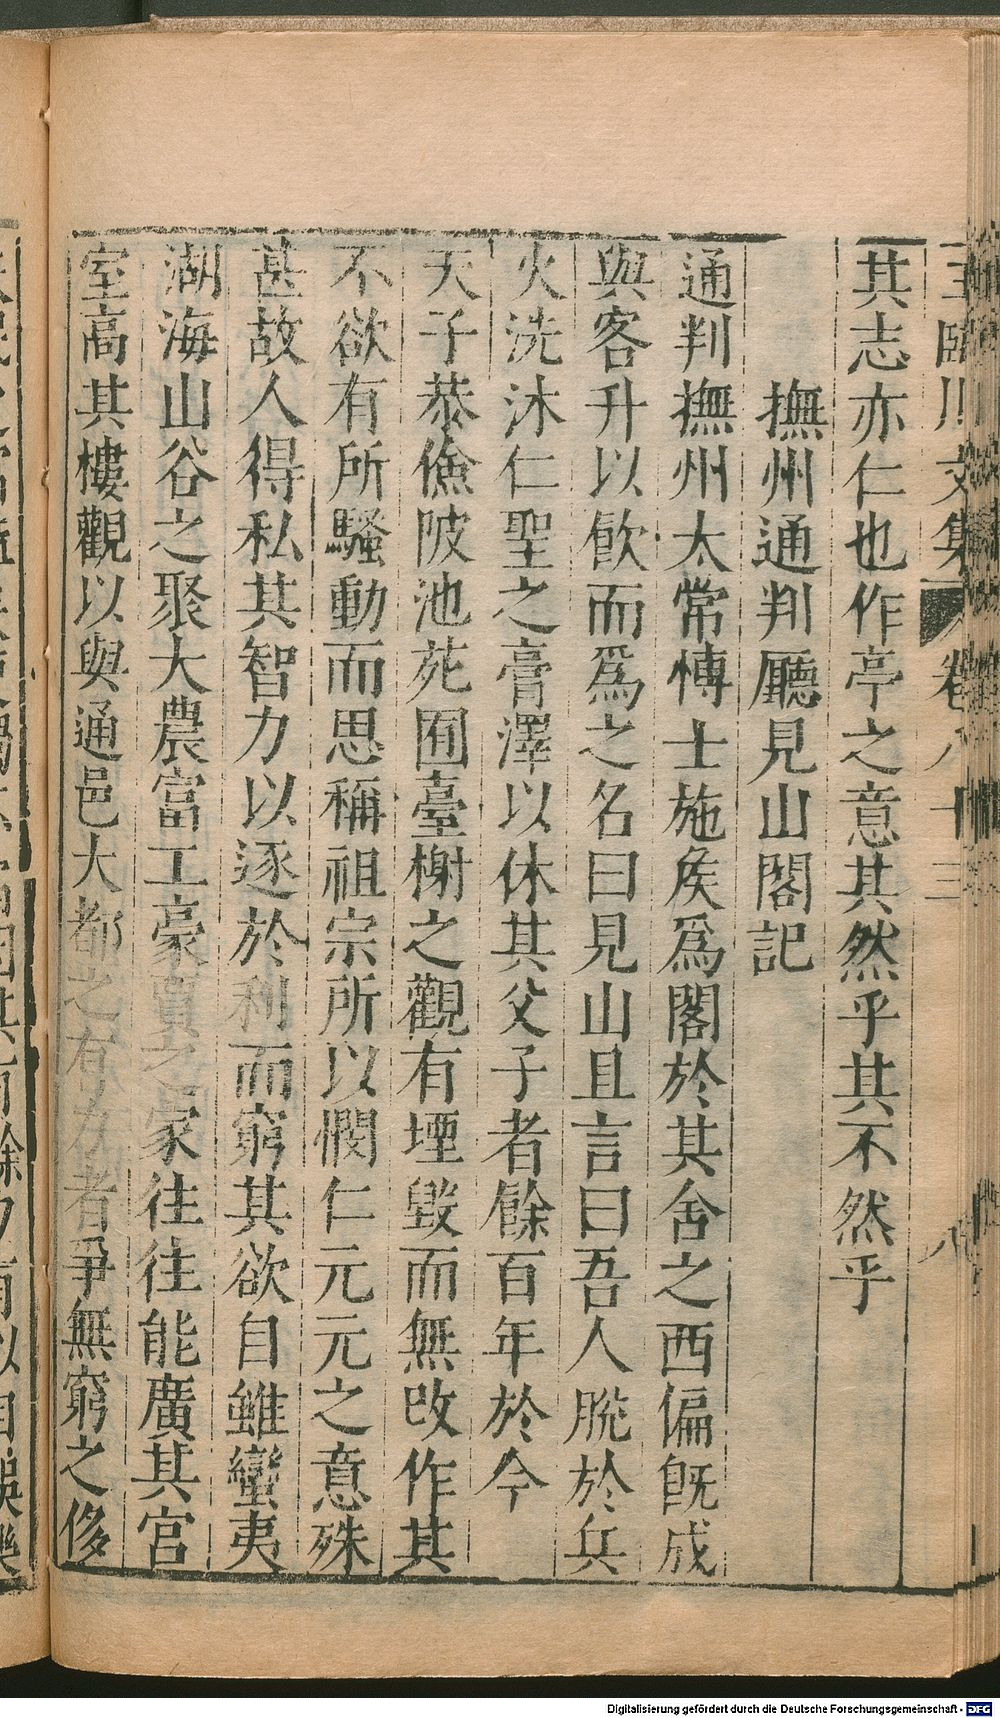 王臨川文集 卷八十三 八
其志亦仁也作亭之意其然乎其不然乎
撫州通判廳見山閣記
通判撫州太常博士施矦爲閣於其舍之西偏旣成
與客升以飮而爲之名曰見山且言曰吾人脫於兵
火洗沐仁聖之膏澤以休其父子者餘百年於今
天子恭儉陂池苑囿臺榭之觀有堙毀而無改作其
不欲有所騷動而思稱祖宗所以憫仁元元之意殊
甚故人得私其智力以逐於利而窮其欲自雖蠻夷
湖海山谷之聚大農富工豪賈之家往往能廣其宮
室高其樓觀以與通邑大都之有力者爭無窮之侈
Digitalisierung gefördert durch die Deutsche Forschungsgemeinschaft - DFG